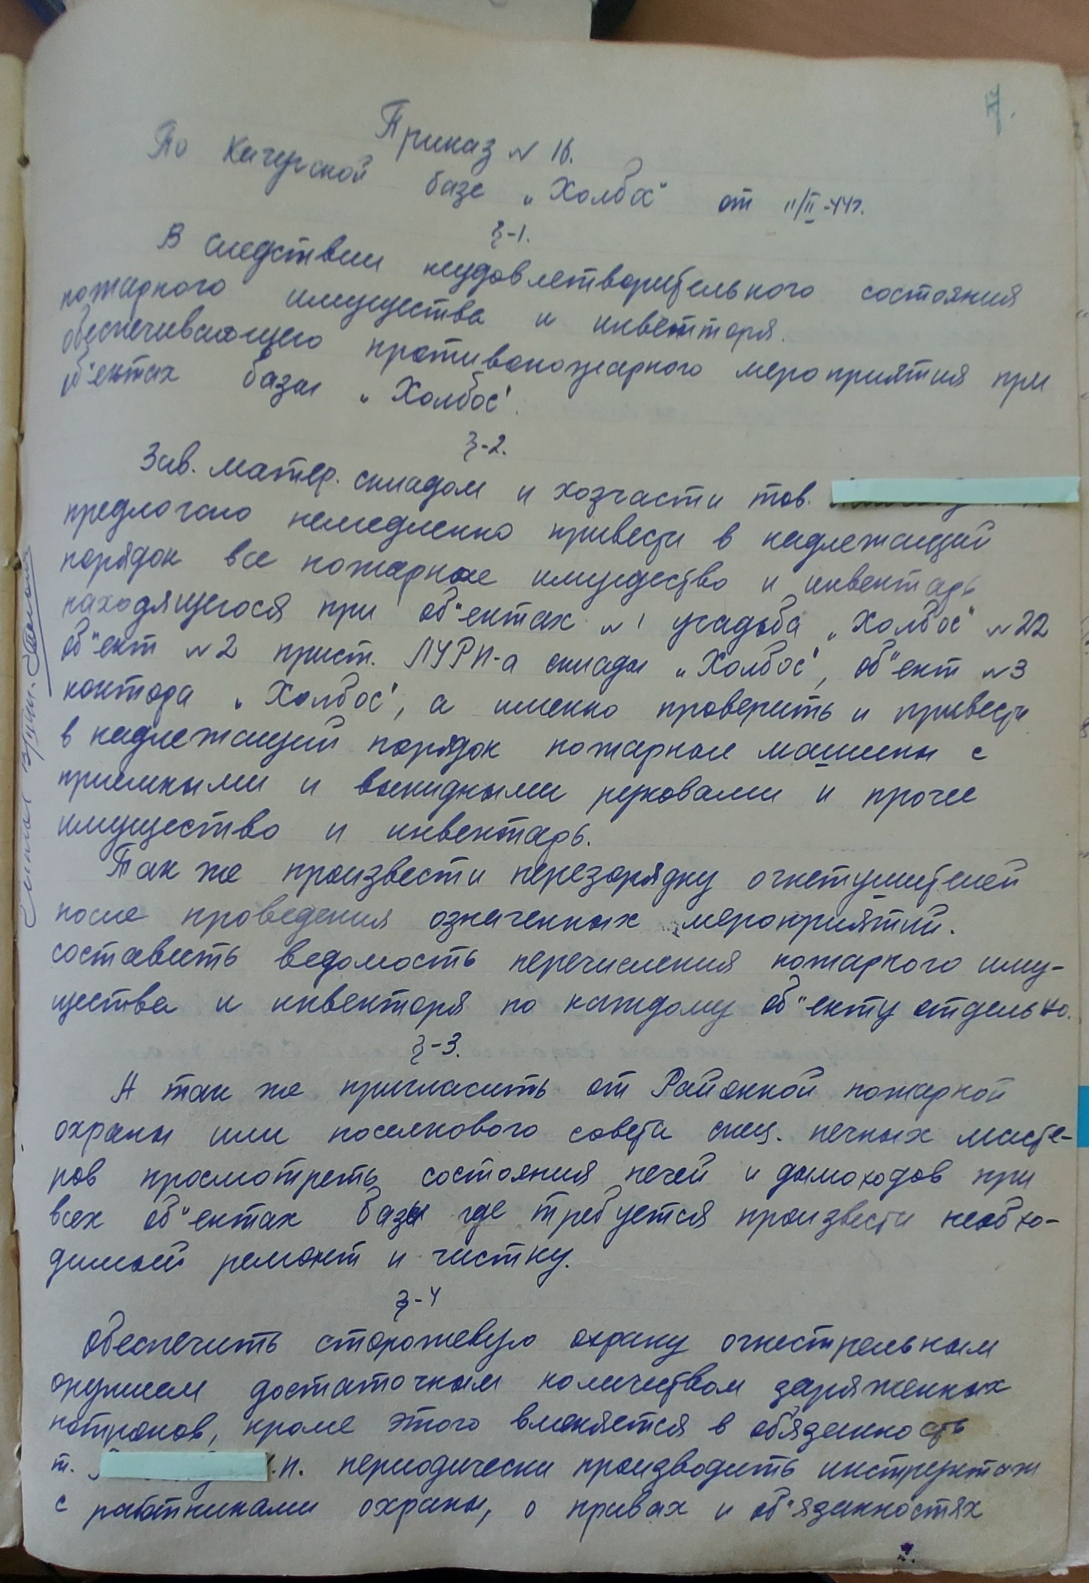 7.
Приказ № 16.
По Качугской базе „Холбос" от 11/II-44г.
§-1.
В следствии неудовлетворительного состояния
пожарного имущества и инвентаря.
обеспечивающего противопожарного мероприятия при
об"ектах базы „Холбос".
§-2.
Зав. матер. складом и хозчасти тов.
предлогаю немедленно привести в надлежащий
порядок все пожарное имущество и инвентарь
находящегося при об"ектах №1 усадьба „Холбос" №22
об"ект №2 прист. ЛУРП-а склады „Холбос", об"ект №3
контора „Холбос", а именно проверить и привести
в надлежащий порядок пожарные машины с
приемными и выкидными руковами и прочее
имущество и инвентарь.
Так же произвести перезорядку огнетушителей
после проведения означенных мероприятий.
составить ведомость перечисления пожарного иму-
щества и инвенторя по каждому об"екту отдельно.
§-3.
А так же пригласить от Районной пожарной
охраны или поселкового совета спец. печных масте-
ров просмотреть состояния печей и дымоходов при
всех об"ектах базы где требуется произвести необхо-
димый ремонт и чистку.
§-4
Обеспечить сторожевую охрану огнестрельным
оружием достаточным количеством заряженных
потронов, кроме этого вменяется в обязенность
т. .п. периодически производить инструктаж
с работниками охраны, о правах и об"язанностях
2.